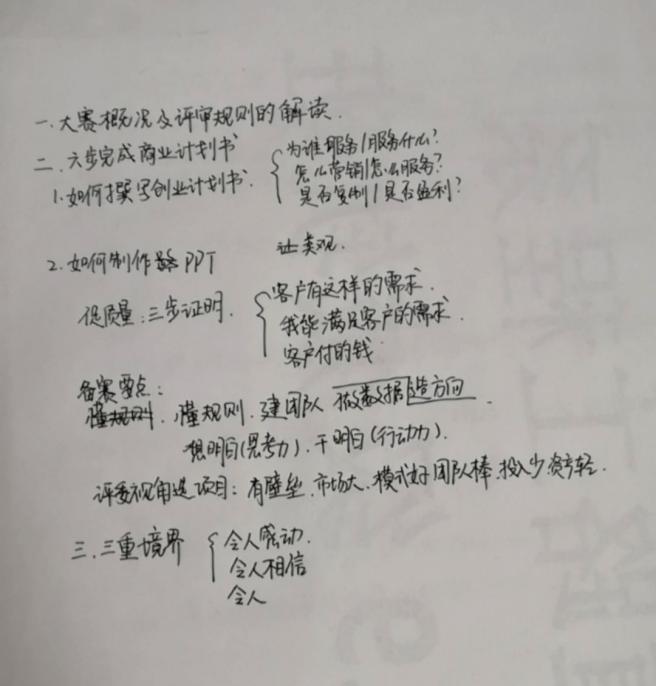 一.大赛概况及评审规则的解读.
二.六步完成商业计划书
为谁服务/服务什么?
1.如何撰写创业计划书.
怎么营销/怎么服务?
是否复制/是否盈利?
让美观.
2.如何制作路PPT
促质量:三步证明.
客户有这样的需求.
我能满足客户的需求.
客户付的钱
备赛要点:
懂规则.懂规则.建团队 做数据 选方向.
想明白(思考力).干明白(行动力).
评委视角选项目:有壁垒.市场大.模式好团队棒.投入少资产轻.
三.三重境界
令人感动.
令人相信
令人